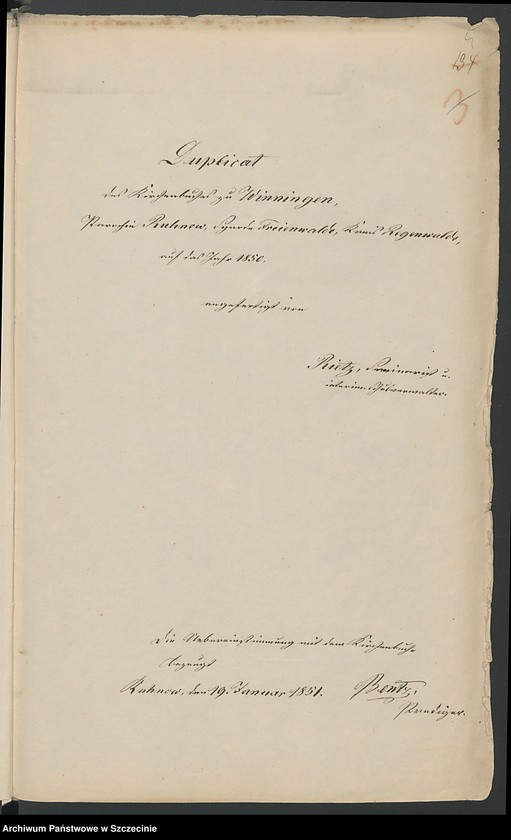 5
134
3
Duplicat
des Kirchenbuches zu Winningen,
Parochie Ruhnow, Synode Freienwalde, Kreis Regenwalde,
auf das Jahr 1850.
angefertigt von
Rietz, Seminarist u.
interim. Schulverwalter.
Die Uebereinstimmung mit dem Kirchenbuche
bezeugt
Ruhnow, den 19. Januar 1851. Bentz,
Prediger.
Archiwum Państwowe w Szczecinie